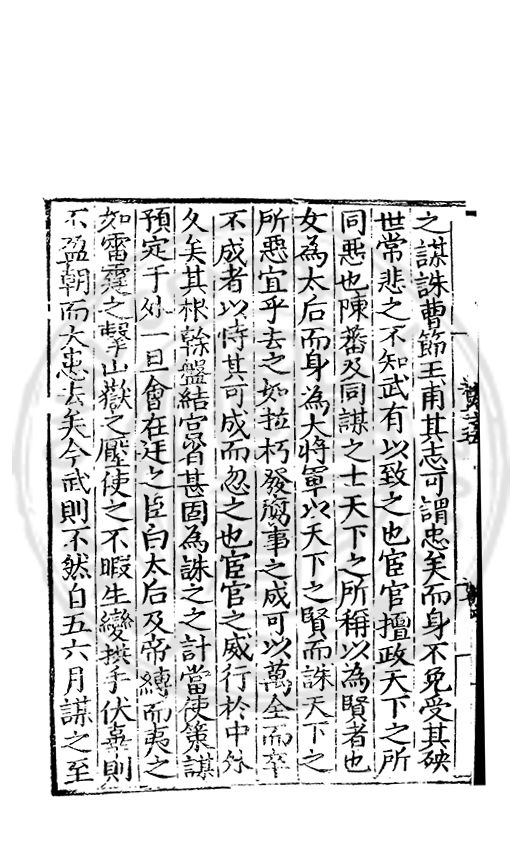 之謀誅曹節王甫其志可謂忠矣而身不免受其殃
世常悲之不知武有以致之也宦官擅政天下之所
同惡也陳蕃及同謀之士天下之所稱以為賢者也
女為太后而身為大將軍以天下之賢而誅天下之
所惡宜乎去之如拉朽發腐事之成可以萬全而卒
不成者以恃其可成而忽之也宦官之威行於中外
久矣其根幹盤結宮省甚固為誅之之計當使策謀
預定于外一旦會在廷之臣白太后及帝縛而夷之
如雷霆之擊山嶽之壓使之不暇生變拱手伏辜則
不盈朝而大患去矣今武則不然自五六月謀之至